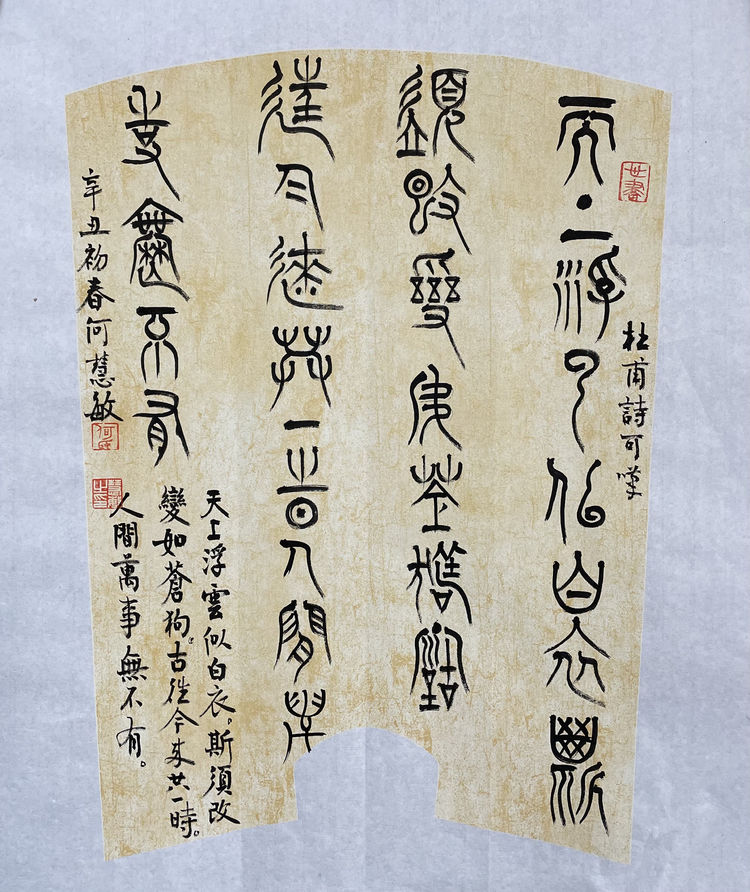 杜甫詩可嘆
天上浮雲似白衣斯
須改變如蒼狗古
往今來共一時人間萬
事無不有
天上浮雲似白衣。斯須改
變如蒼狗。古往今來共一時。
人間萬事無不有。
辛丑初春何慧敏
何氏